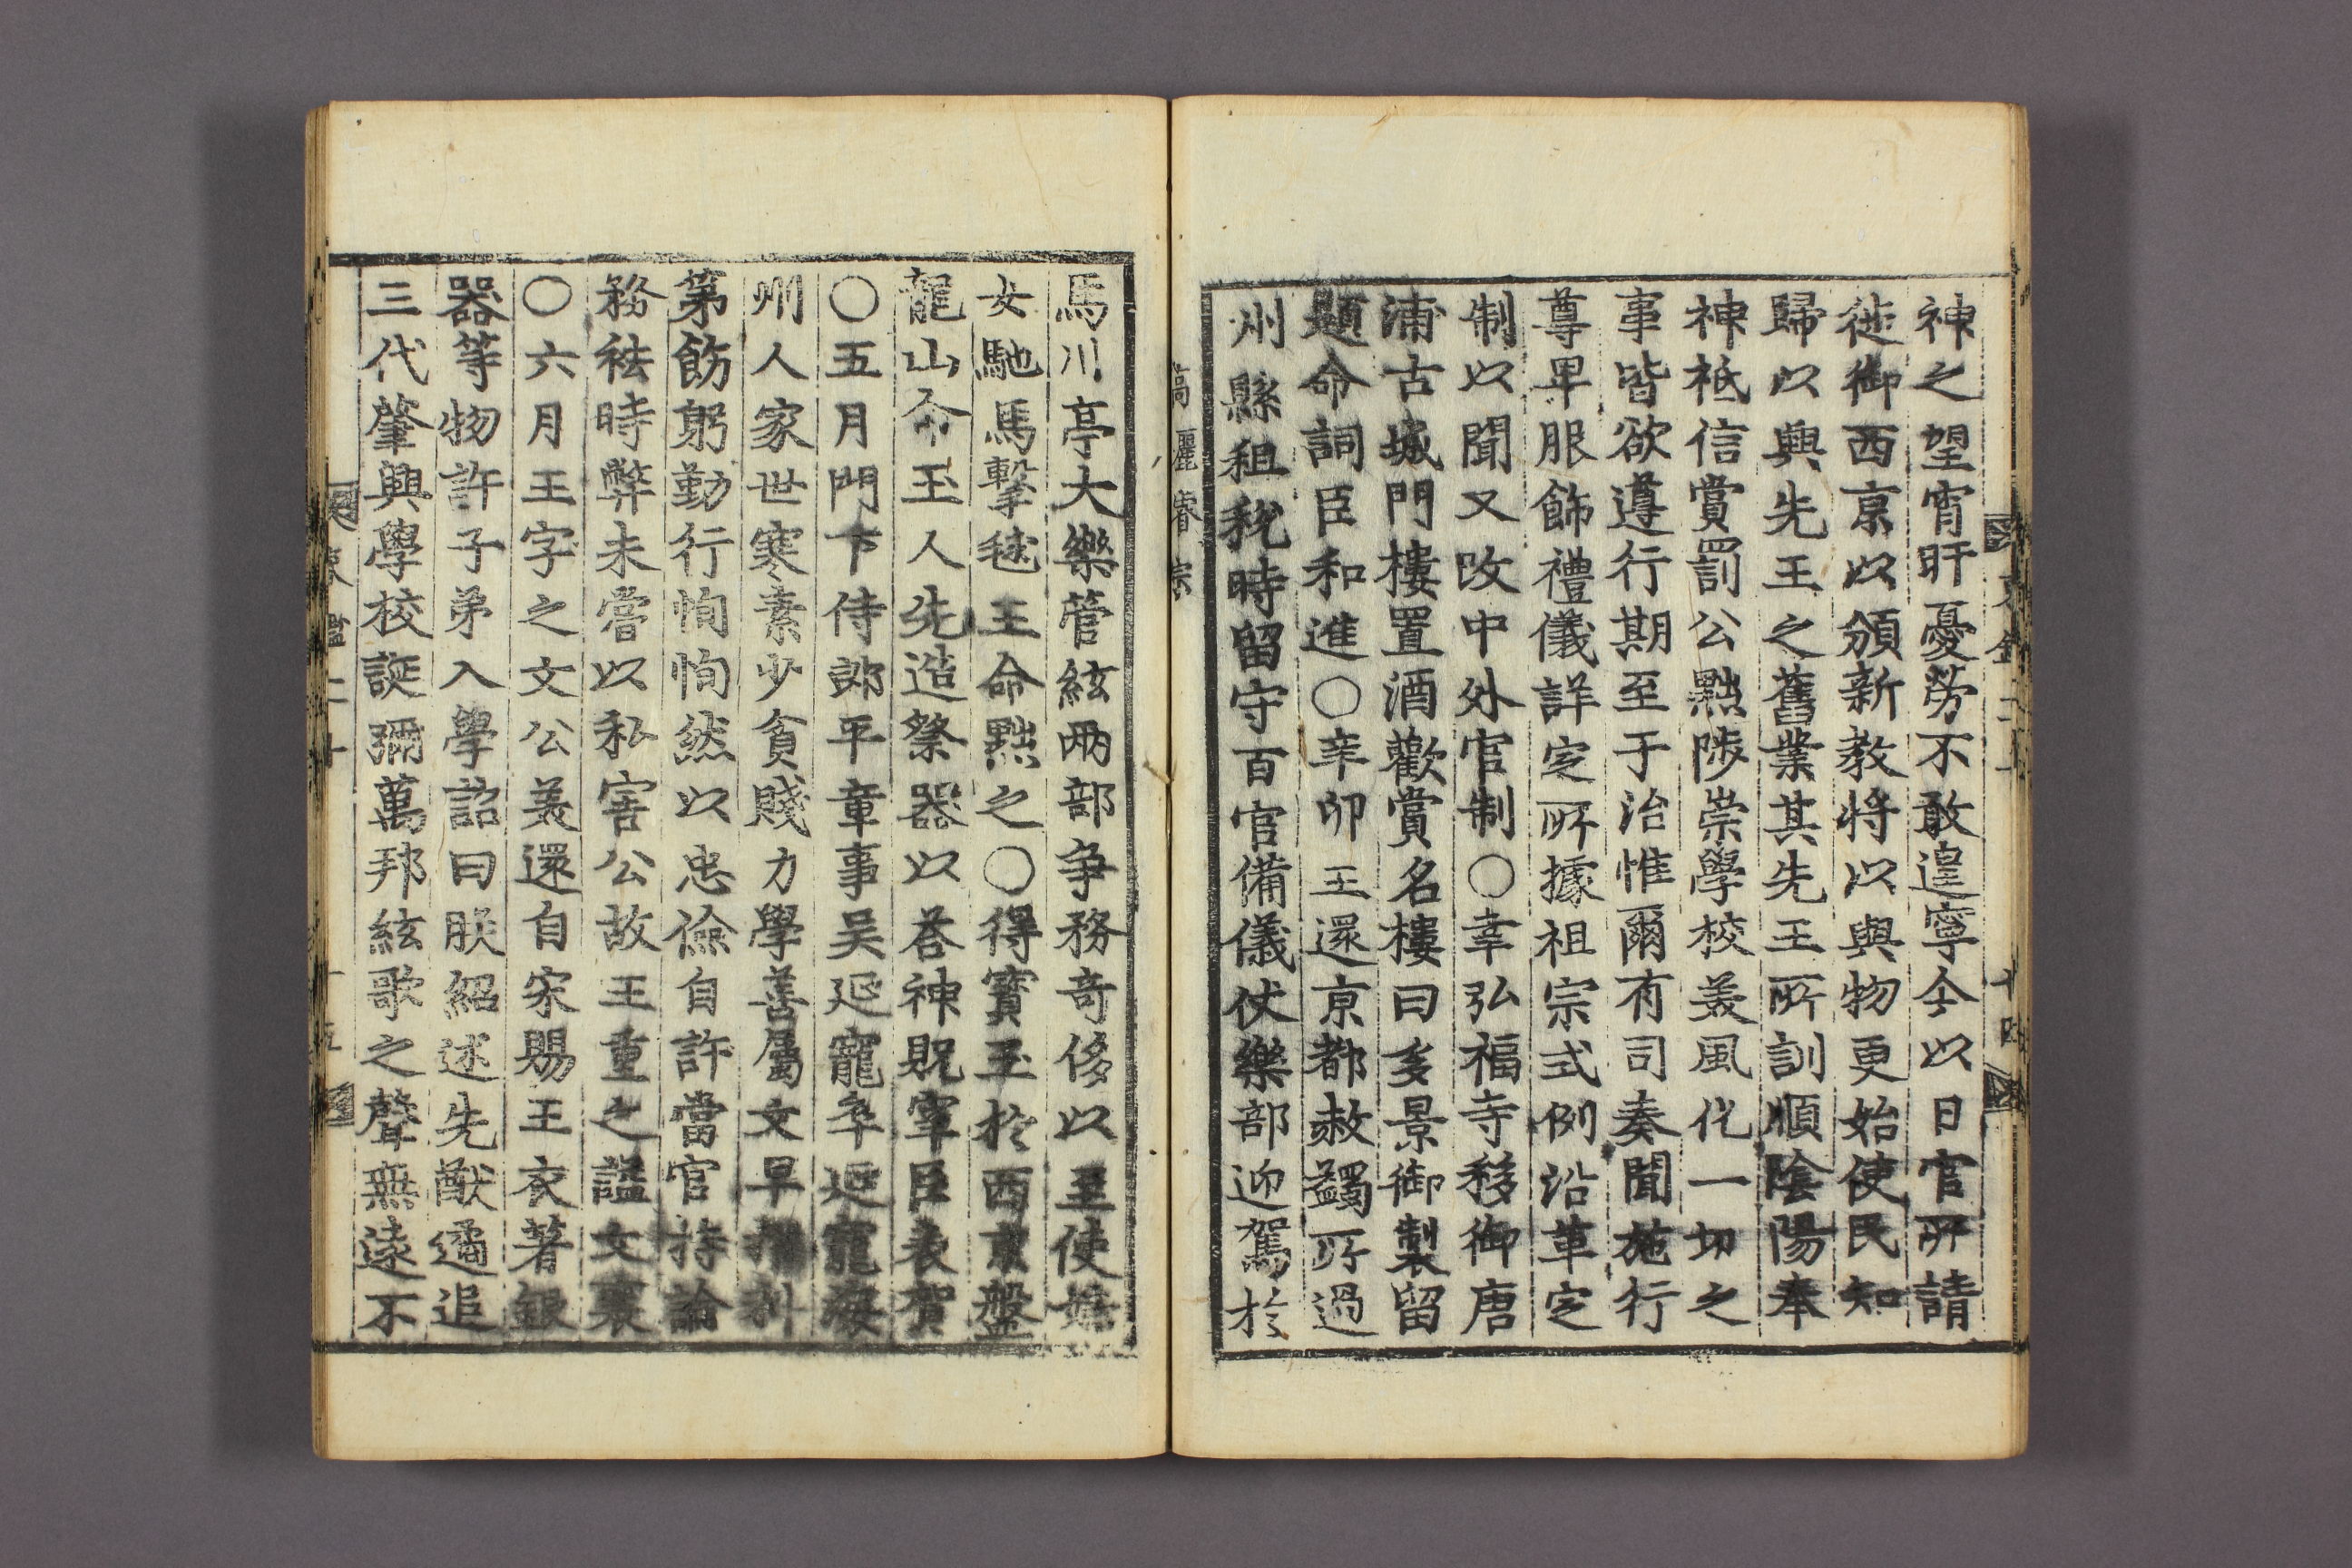 神之望宵旰憂勞不敢遑寧今以日官所請
徙御西京以頒新教將以與物更始使民知
歸以興先王之舊業其先王所訓順陰陽奉
神祗信賞罰公黜陟崇學校美風化一切之
事皆欲遵行期至于治惟爾有司奏聞施行
尊卑服飾禮儀詳定所據祖宗式例沿革定
制以聞又改中外官制○幸弘福寺移御唐
浦古城門樓置酒歡賞名樓曰多景御製留
題命詞臣和進○辛卯王還京都赦蠲所過
州縣租稅時留守百官備儀仗樂部迎駕於
高麗睿宗
馬川亭大樂管絃兩部爭務奇侈以至使
女馳馬擊毬王命黜之○得寶玉於西京盤
龍山命玉人先造祭器以荅神貺宰臣表賀
○五月門下侍郞平章事吴延寵卒延寵海
州人家世寒素少貧賤力學善屬文早擢
第飭躬勤行恂恂然以忠儉自許當官持論
務袪時弊未嘗以私害公故王重之謚文襄
○六月王字之文公美還自宋賜王衣著銀
器等物許子弟入學詔曰朕紹述先猷遹追
三代肇興學校誕彌萬邦絃歌之聲無遠不